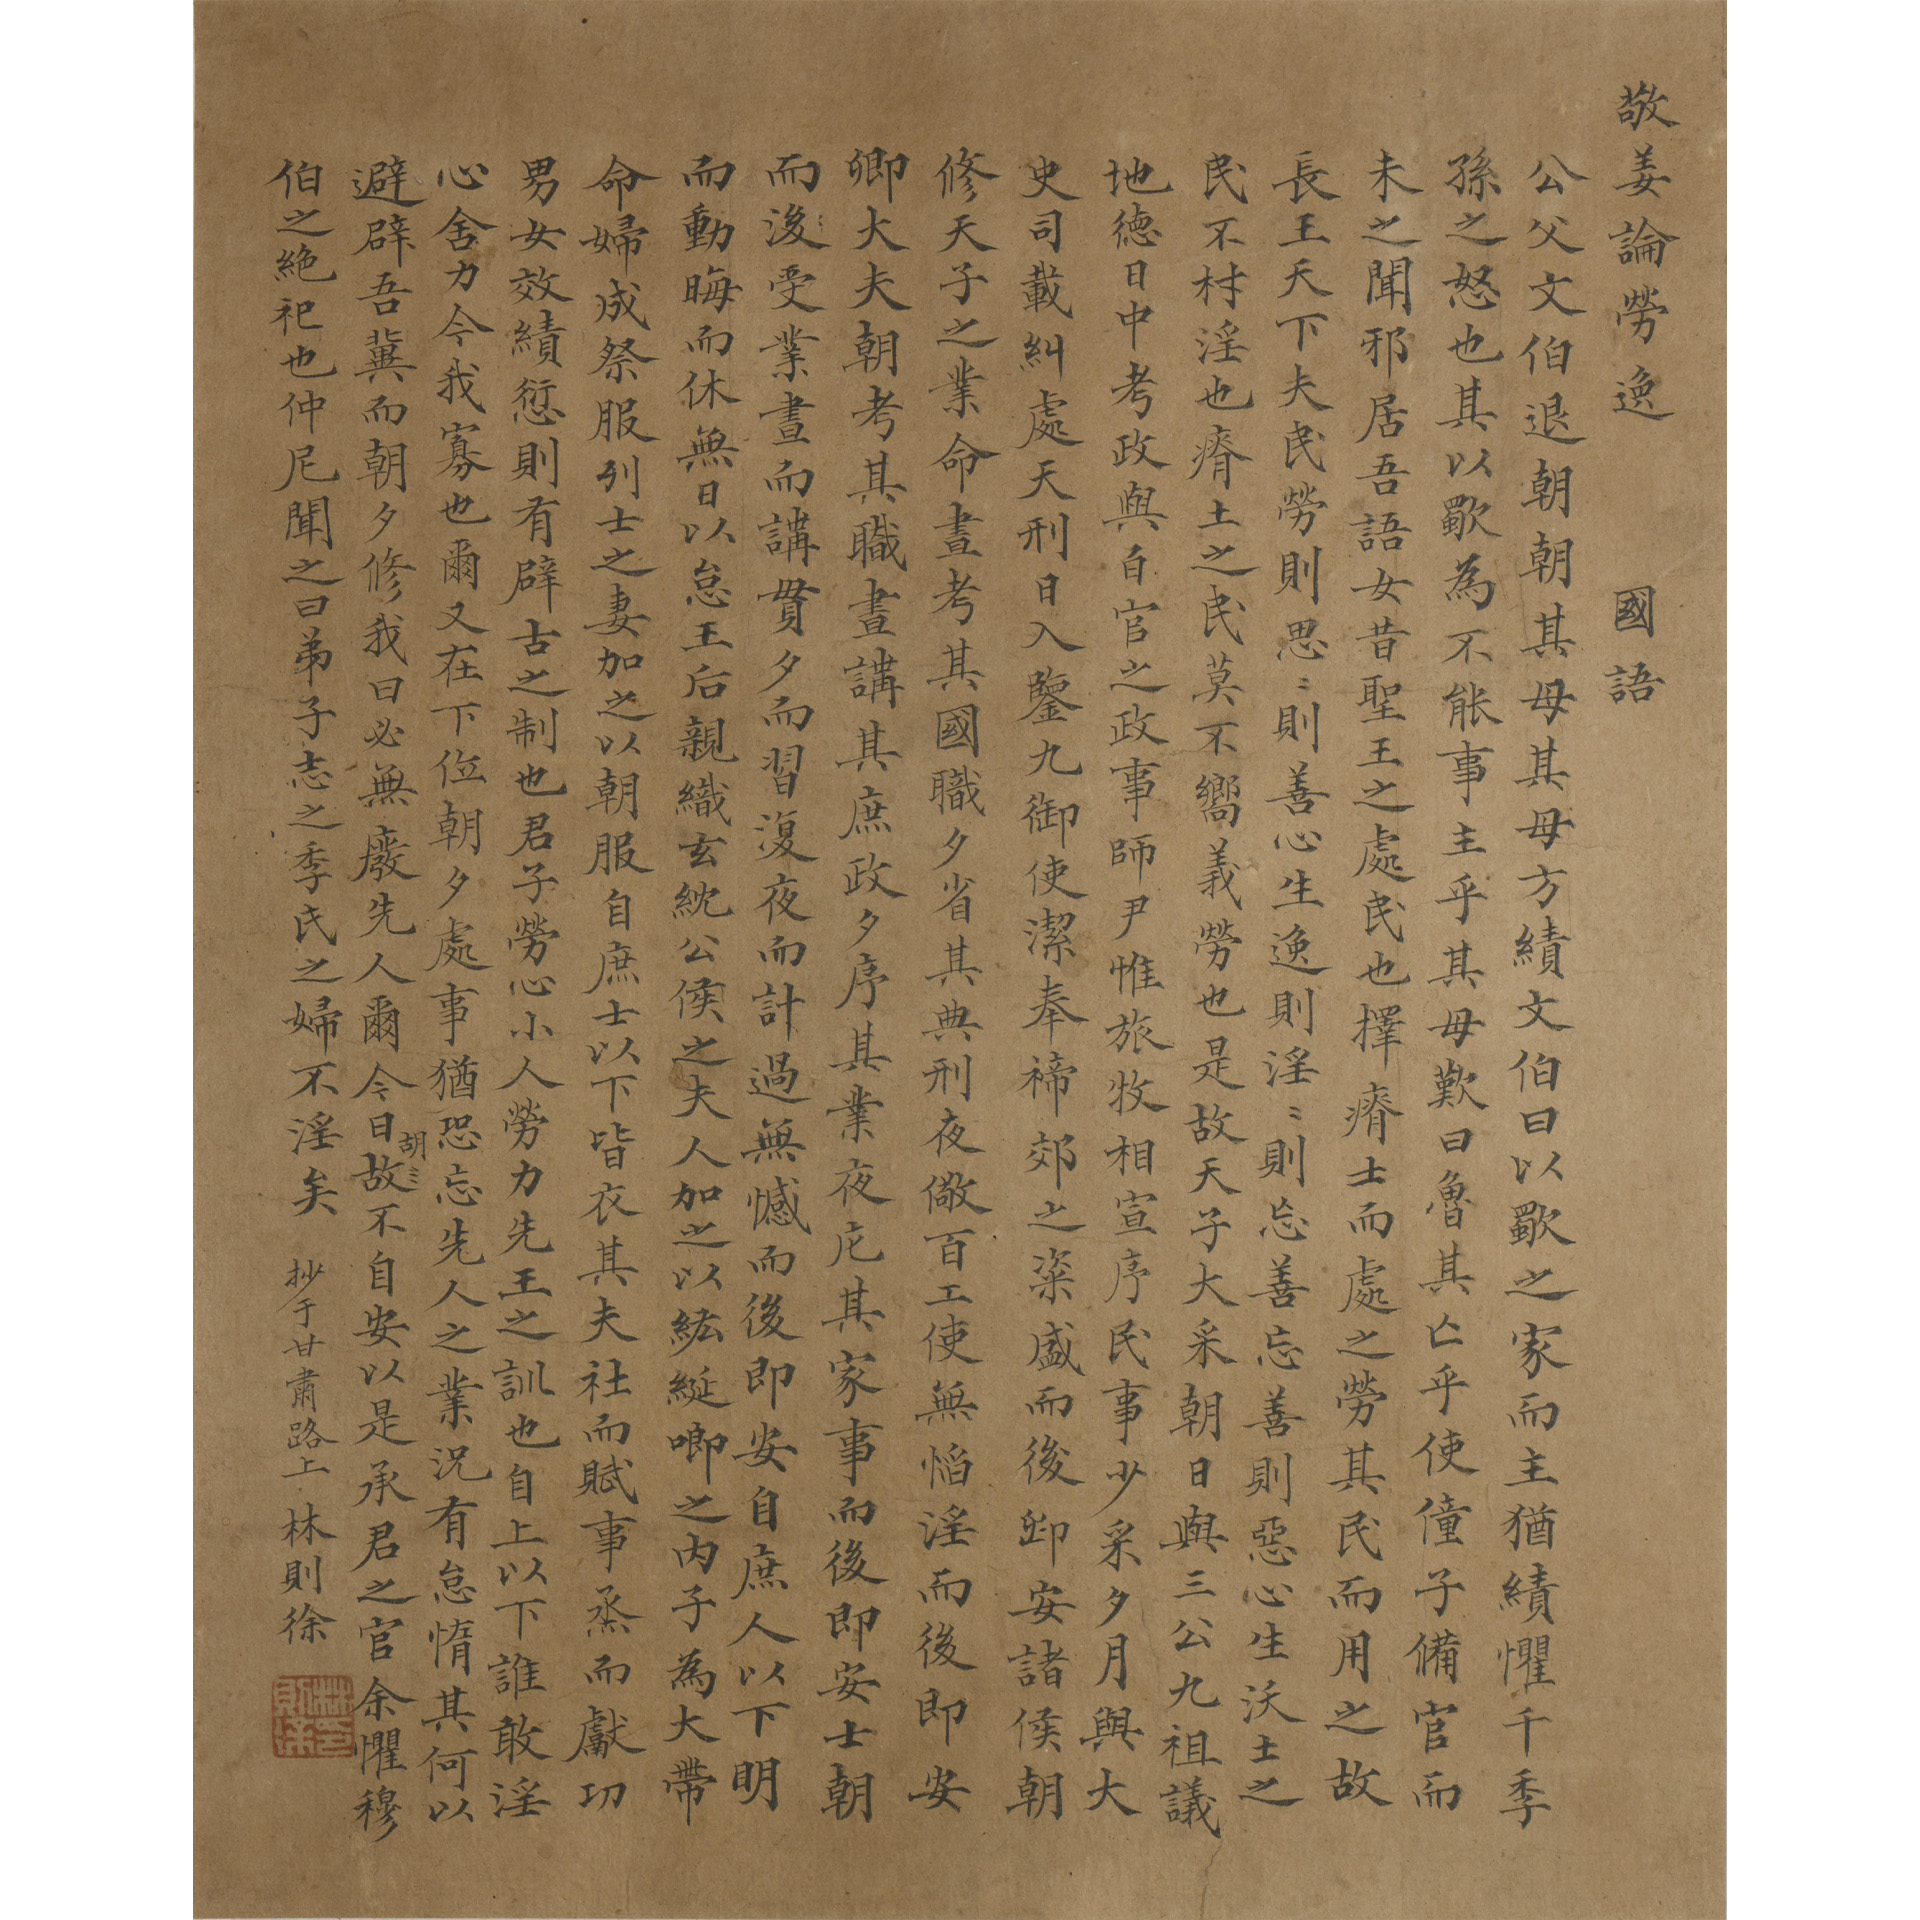 敬姜論勞逸　國語
公父文伯退朝朝其母其母方績文伯曰以歜之家而主猶績懼千季
孫之怒也其以歜為不能事主乎其母歎曰魯其亡乎使僮子備官而
未之聞邪居吾語女昔聖王之處民也擇瘠土而處之勞其民而用之故
長王天下夫民勞則思〻則善心生逸則淫〻則忘善忘善則惡心生沃土之
民不材淫也瘠土之民莫不嚮義勞也是故天子大采朝日與三公九祖議
地德日中考政與百官之政事師尹惟旅牧相宣序民事少采夕月與大
史司載糾處天刑日入鑒九御使潔奉禘郊之粢盛而後卽安諸侯朝
修天子之業命晝考其國職夕省其典刑夜儆百工使無慆淫而後即安
卿大夫朝考其職晝講其庶政夕序其業夜庀其家事而後即安士朝
而後受業晝而講貫夕而習復夜而計過無憾而後即安自庶人以下明
而動晦而休無日以怠王后親織玄紞公侯之夫人加之以紘綖卿之內子為大帶
命婦成祭服列士之妻加之以朝服自庶士以下皆衣其夫社而賦事烝而獻功
男女效績愆則有辟古之制也君子勞心小人勞力先王之訓也自上以下誰敢淫
心舍力今我寡也爾又在下位朝夕處事猶恐忘先人之業況有怠惰其何以
避辟吾冀而朝夕修我曰必無廢先人爾今日故胡〻不自安以是承君之官余懼穆
伯之絶祀也仲尼聞之曰弟子志之季氏之婦不淫矣　抄于甘肅路上　林則徐
林則徐印